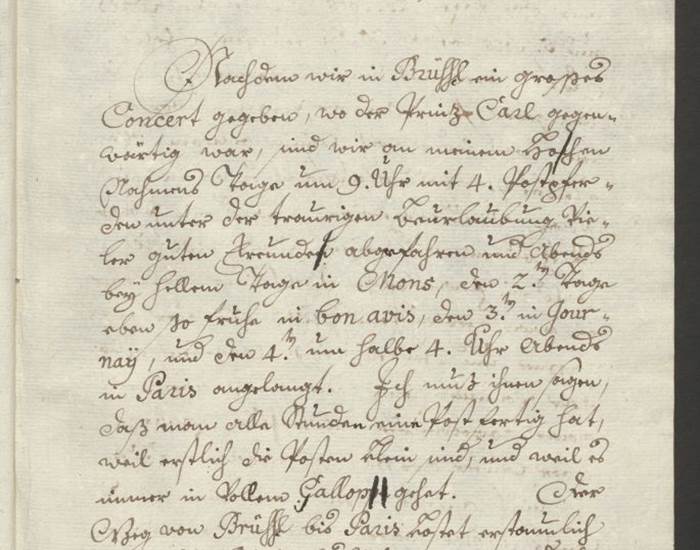 Nachdem wir in Brüßl ein großes
Concert gegeben, wo der Prinz Carl gegen-
wärtig war, sind wir an meinem Hochen
Nahmens Tage um 9. Uhr mit 4. Postpfer-
den unter der traurigen Beurlaubung vie-
ler guten Freunde abgefahren und Abends
bey hellem Tage in Mons, den 2.tn Tage
eben so fruhe in bon avis, den 3.tn in Gour-
nay, und den 4.tn um halbe 4. Uhr Abends
in Paris angelangt. Ich muß ihnen sagen,
daß man alle Stunden eine Post fertig hat,
weil erstlich die Posten klein sind, und weil es
immer in Vollem Gallopp gehet. Der
Weg von Brüßl bis Paris kostet erstaunlich